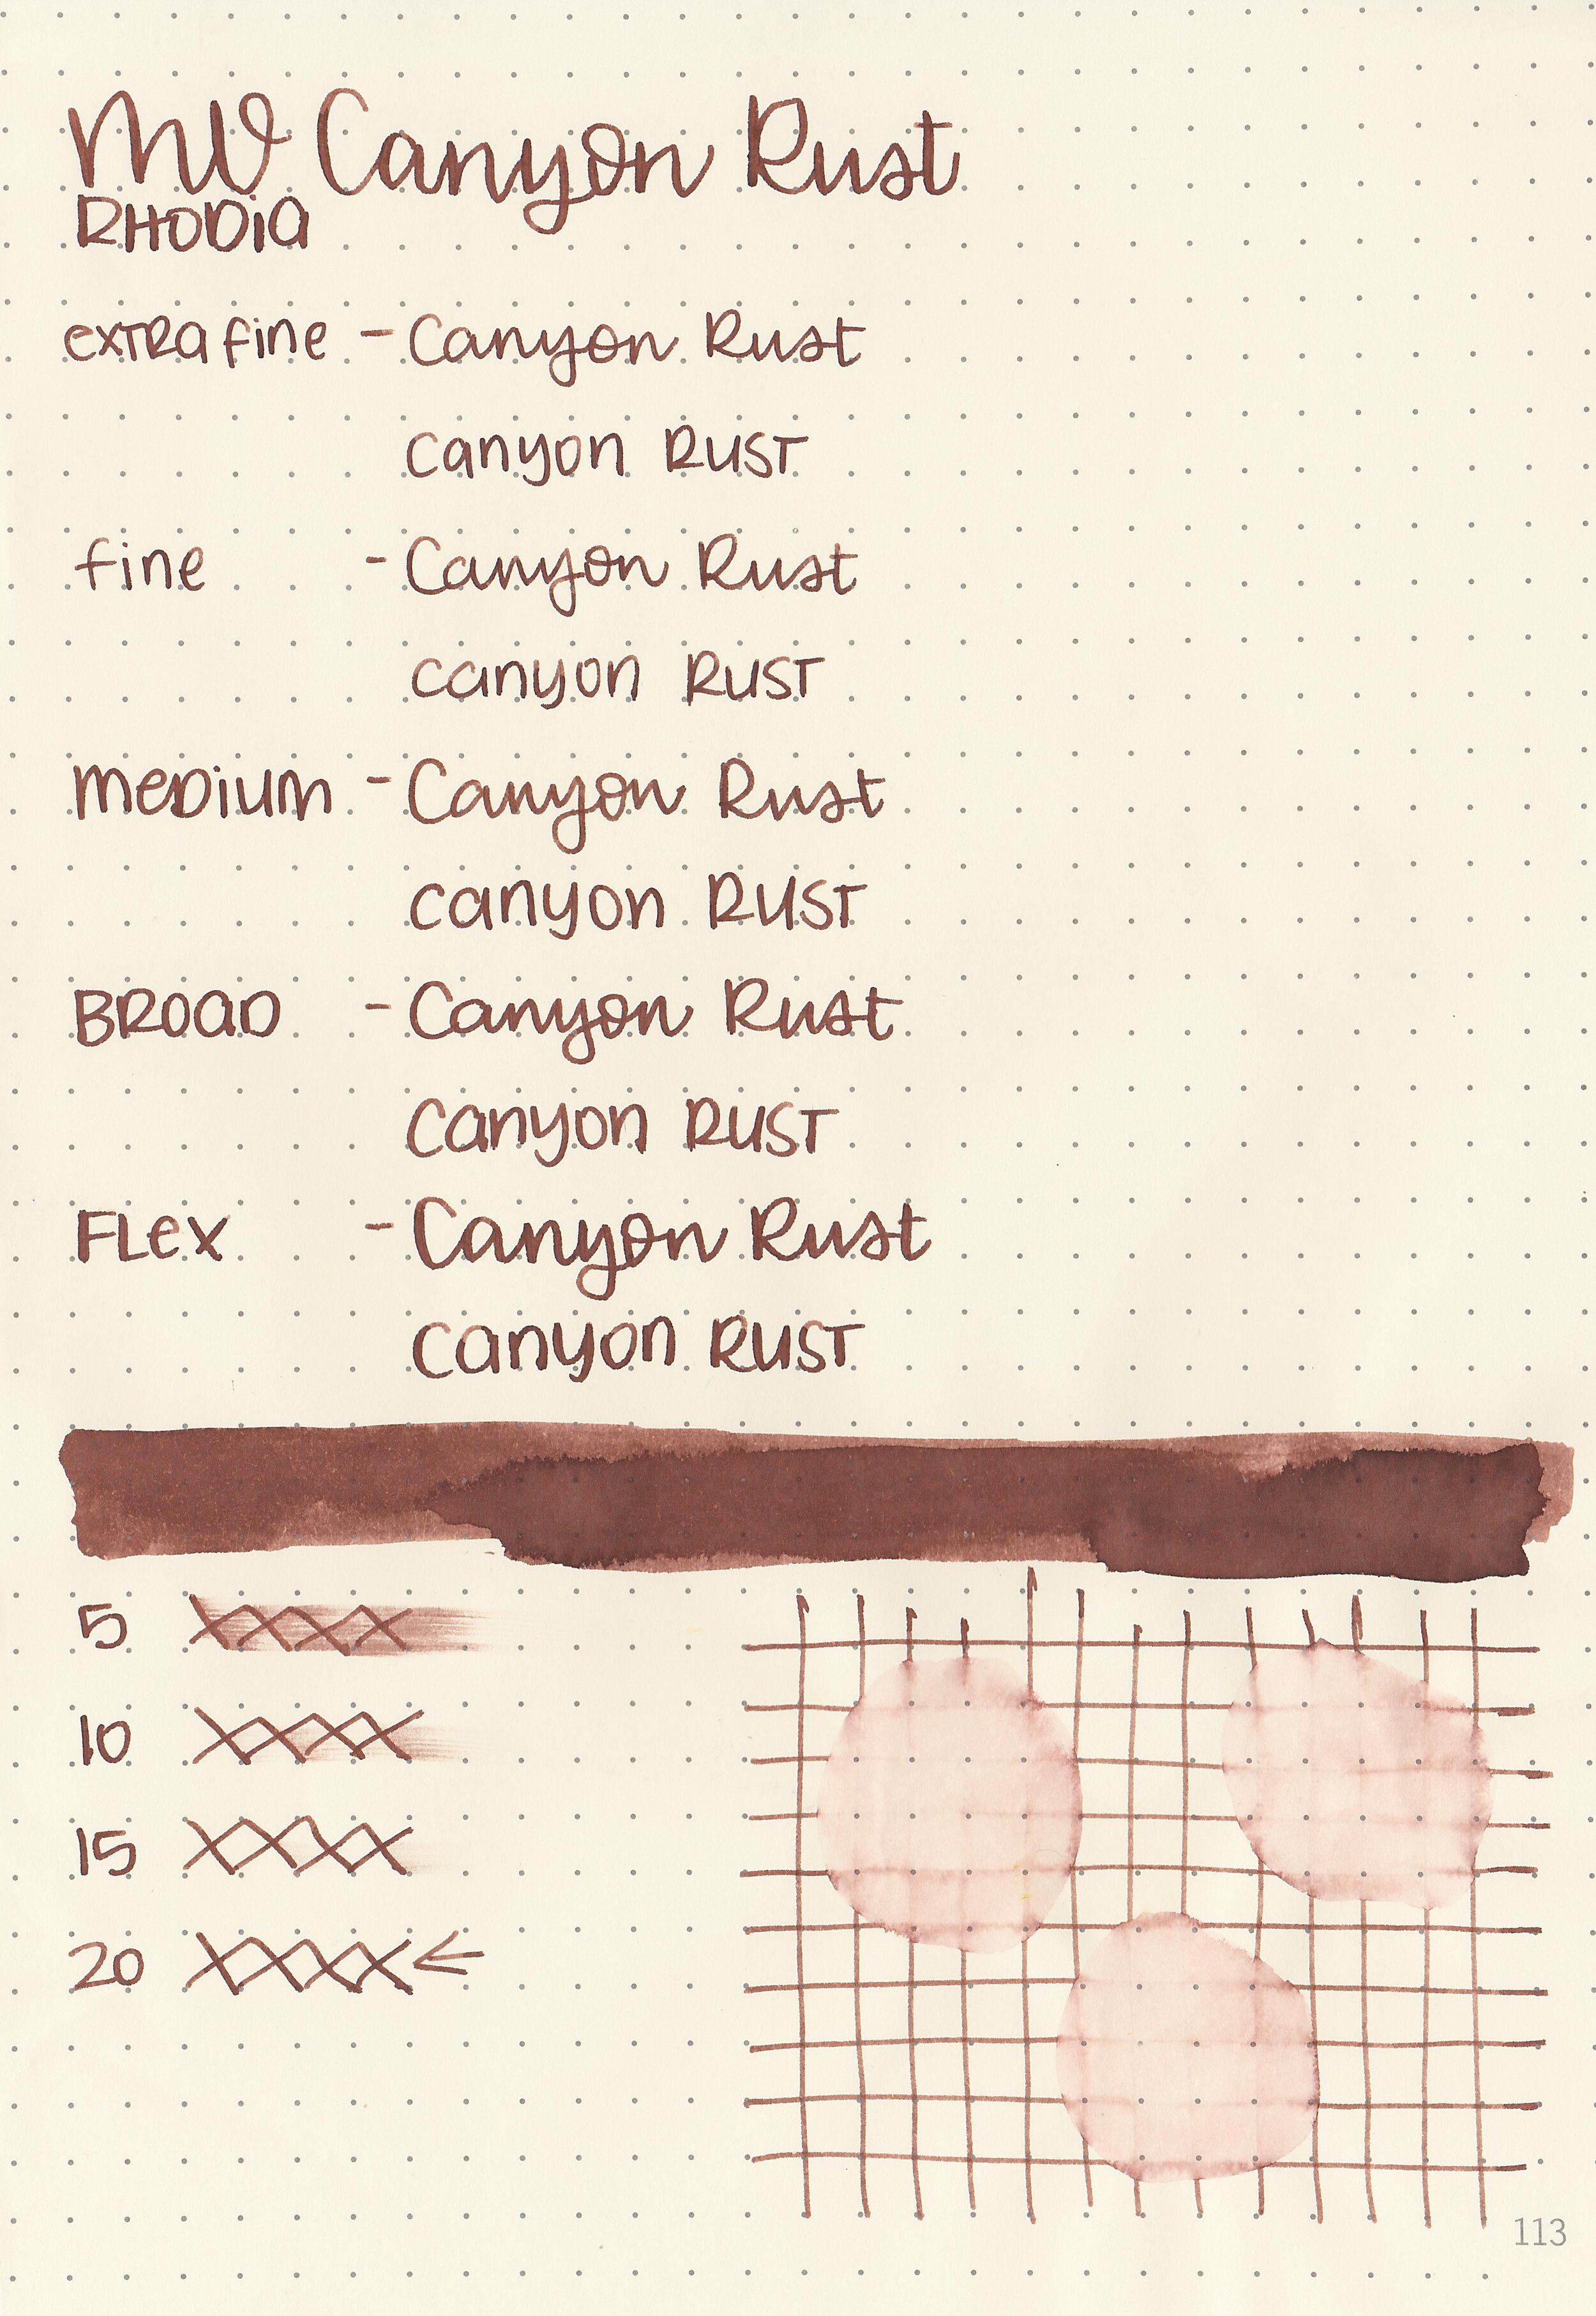 MV Canyon Rust
RHODIA
extra fine - Canyon Rust
canyon RUST
fine - Canyon Rust
canyon RUST
MEDIUM - Canyon Rust
canyon RUST
BROAD - Canyon Rust
canyon RUST
FLEX - Canyon Rust
canyon RUST
5 XXXX
10 XXXX
15 XXXX
20 XXXX ←
113